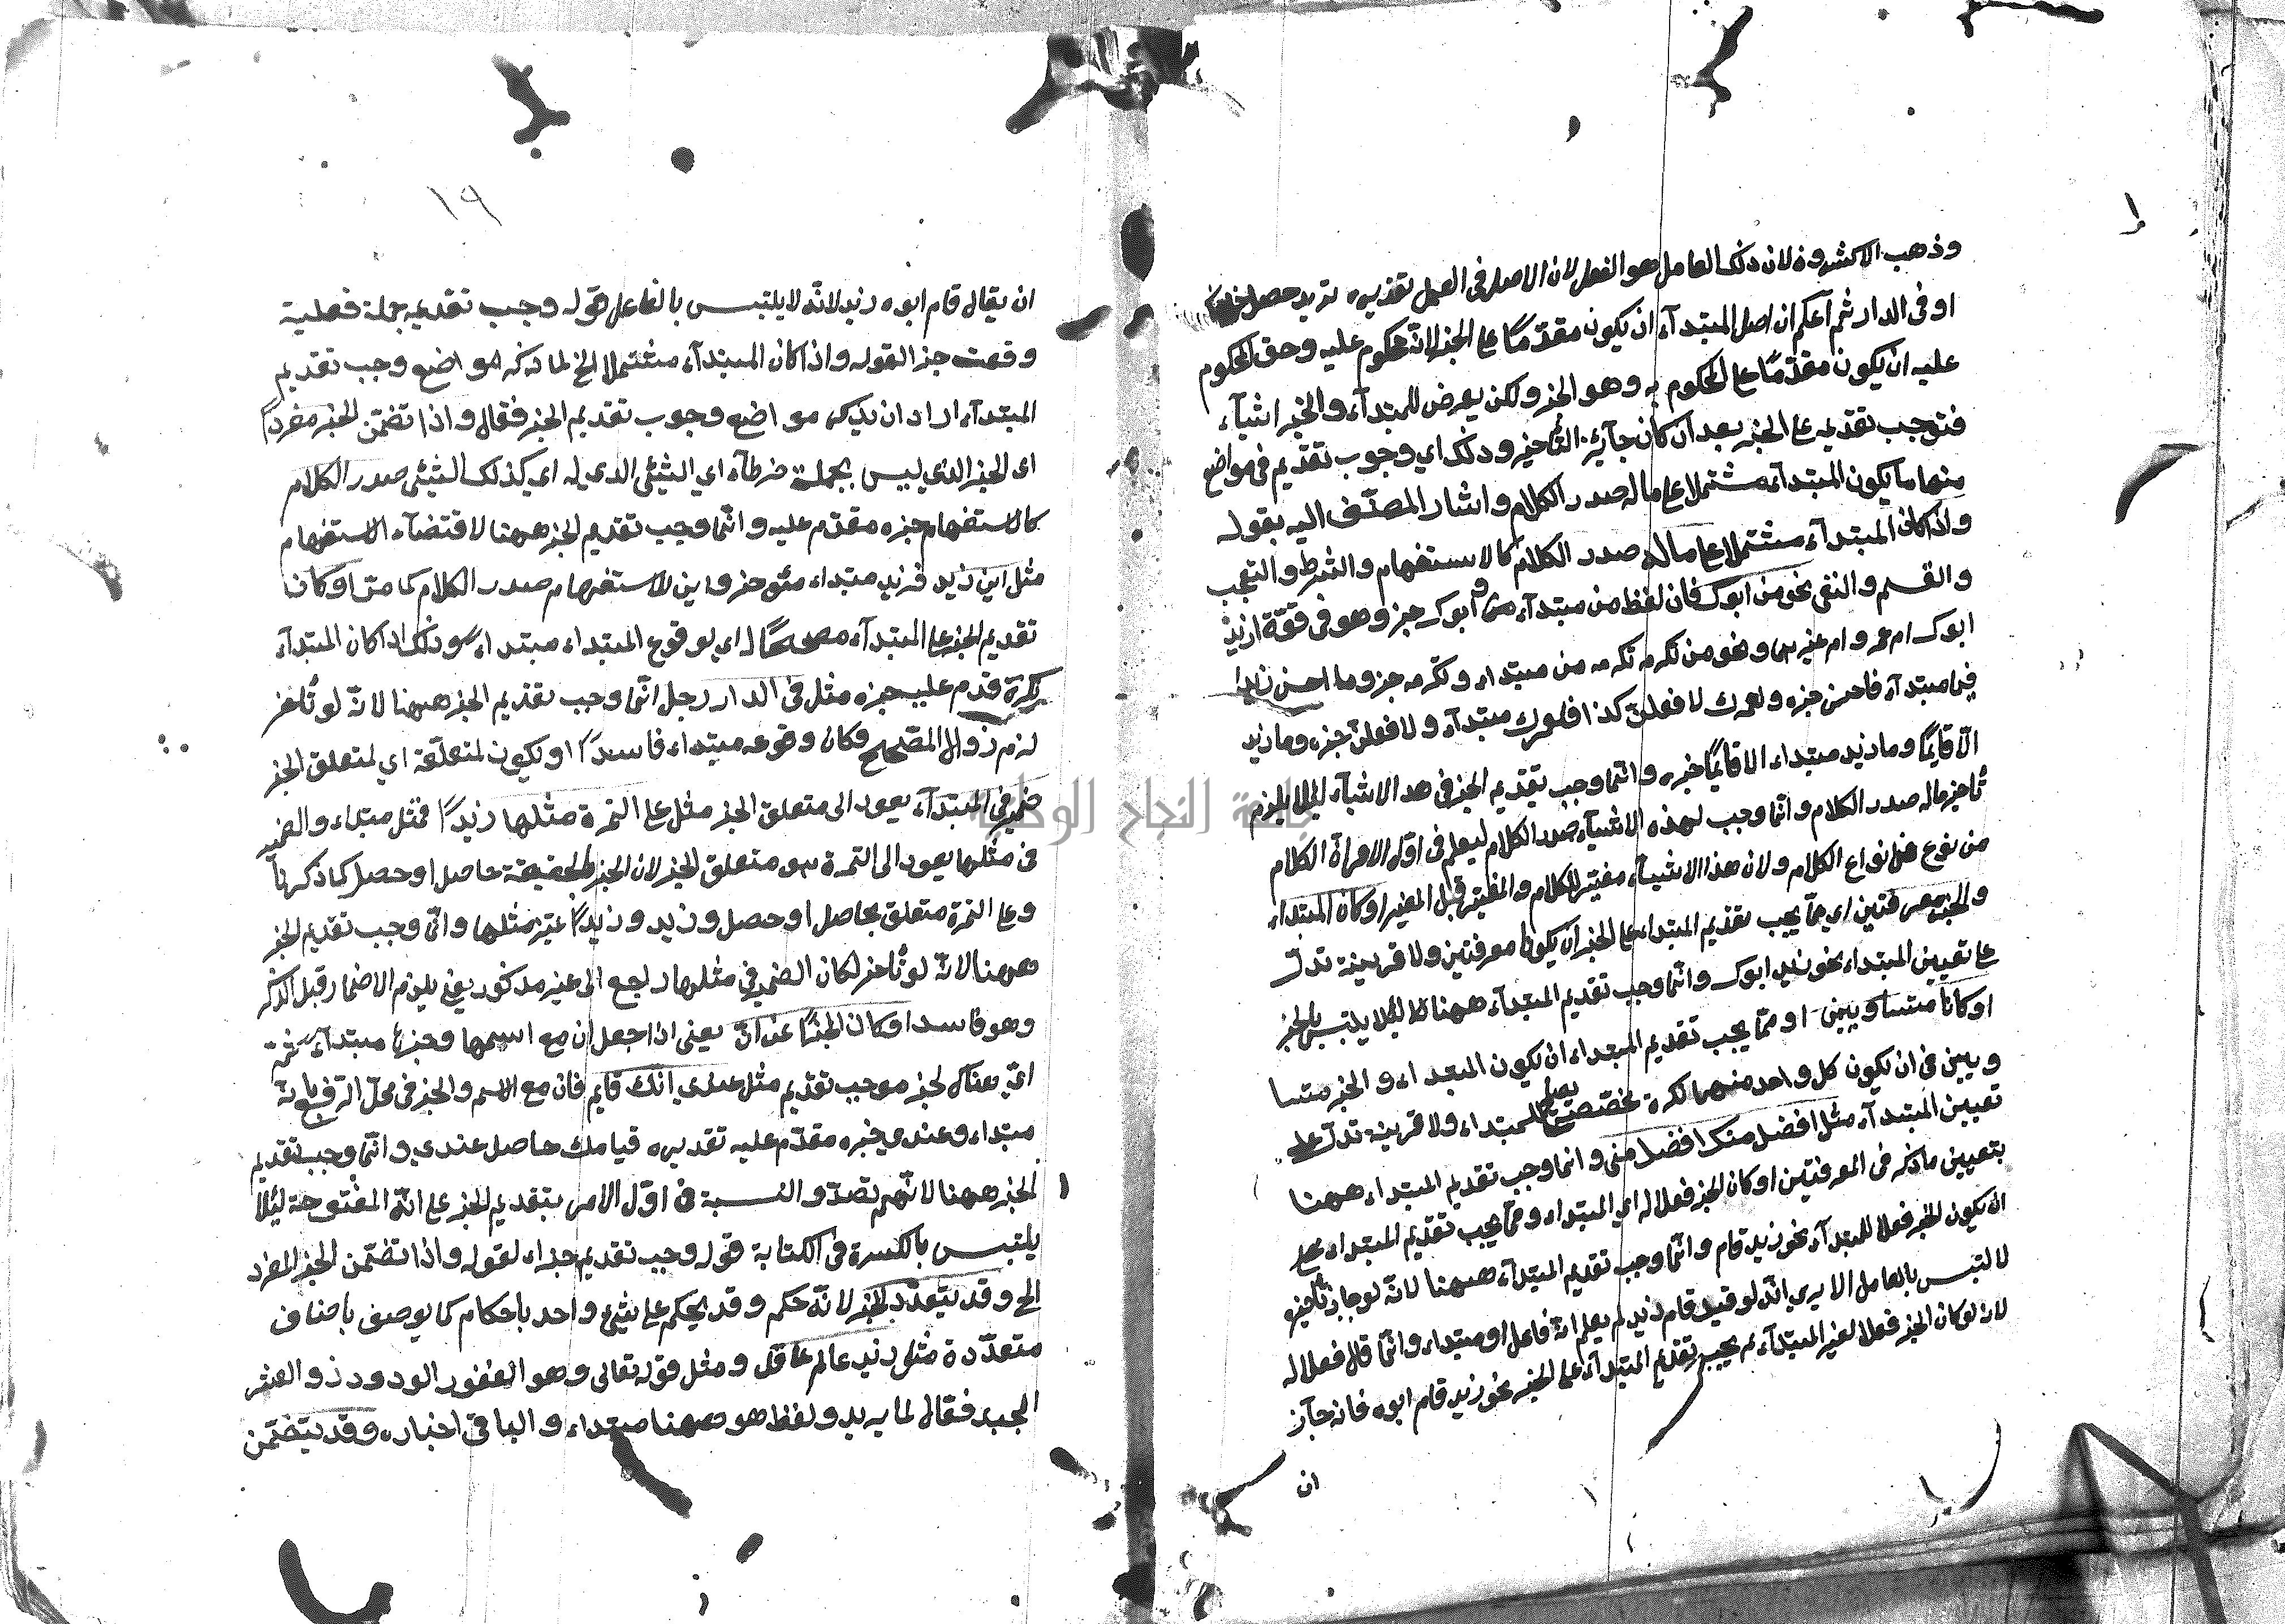 وذهب الاكثرون لان ذلك العامل هو الفعل لان الاصل فى العمل تقديره زيد حصل
او فى الدار ثم اعلم ان اصل المبتدآء ان يكون مقدّمًا على الخبر لانّه محكوم عليه وحق المحكوم
عليه ان يكون مقدّمًا على المحكوم به وهو الخبر ولكن يعرض للمبتدآء والخبر اشيآء
فتوجب تقديمه على الخبر بعد ان كان جآيز التأخير وذلك اي وجوب تقديم فى مواضع
منها ما يكون المبتدآء مشتملا على ما له صدر الكلام واشار المصنّف اليه بقوله
واذا كان المبتدآء مشتملا على ماله صدر الكلام كالاستفهام والشرط والتعجب
والقسم والنفى نحو من ابوك فان لفظ من مبتدآء وابوك خبر وهو فى قوّة ازيد
ابوك ام عمرو ام غيرهما ونحو من تكرمه تكرمه من مبتداء وتكرمه خبر وما احسن زيدا
فما مبتدآء فاحسن خبره ولعمرك لا فعلن كذا فلعمرك مبتدآء ولا فعلن خبره وما زيد
الّا قايمًا وما زيد مبتداء الا قايمًا خبره وانما وجب تقديم الخبر فى هذ الاشيآء ليلا يلزم
تأخير ماله صدر الكلام وانّما وجب لهذه الاشيآء صدر الكلام ليعلم فى اوّل الامر ان الكلام
من نوع من انواع الكلام ولان هذا الاشيآء مغيّر للكلام والمغيّر قبل المغير او كان المبتداء
والخبر معرفتين اي ممّا يجب تقديم المبتداء على الخبر ان يكونا معرفتين ولا قرينة تدلّ
على تعيين المبتداء نحو زيد ابوك وانّما وجب تقديم المبتدآء ههنا ليلا يلتبس بالخبر
او كانا متساويين او ممّا يجب تقديم المبتداء ان يكون المبتداء والخبر متسا
ويين فى ان يكون كل واحد منهما نكرة مخصّصة يصلح للمبتداء ولا قرينة تدلّ على
تعيين المبتدآء مثل افضل منك افضل منى وانما وجب تقديم المبتداء ههنا
بتعيين ما ذكر فى المعرفتين او كان الخبر فعلا له اي المبتداء وممّا يجب تقديم المبتداء على
ان يكون الخبر فعلا للمبتدآء نحو زيد قام وانّما وجب تقديم المبتدآء ههنا لانّه لو جاز تأخيره
لالتبس بالعامل الا يرى انّه لو قيل قام زيد لم يعلم انّه فاعل او مبتداء وانّما قال فعلا له
لان لو كان الخبر فعلا لغير المبتدآء لم يجب تقديم المبتدآء على الخبر نحو زيد قام ابوه فانه جآز
ان
١٩
ان يقال قام ابوه زيد لانّه لا يلتبس بالفاعل قوله وجب تقديمه جملة فعلية
وقعت جزا لقوله واذا كان المبتدآء مشتملا الخ لما ذكر مواضع وجب تقديم
المبتدآء اراد ان يذكر مواضع وجوب تقديم الخبر فقال واذا تضمّن الخبر مفردًا
اى الخبر الذي ليس بجملة اي الشئي الذي له اي كذلك الشيئ صدر الكلام
كالاستفهام خبره مقدّم عليه وانّما وجب تقديم الخبر ههنا لاقتضآء الاستفهام
مثل اين زيد فزيد مبتداء خبر واين للاستفهام صدر الكلام كما مرّ او كان
تقديم الخبر على المبتدآء مصححًا له اي لوقوع المبتداء مبتداء وذلك اذا كان المبتدآء
نكرة قدم عليه خبره مثل فى الدار رجل انّما وجب تقديم الخبر ههنا لانّه لو تأخر
لزم زوال المصّحح فكان وقوعه مبتداء فاسدًا او يكون لمتعلّقه اي لمتعلق الخبر
ضمير فى المبتدآء يعود الى متعلق الخبر مثل على التمرة مثلها زيدًا فمثل مبتداء والضمير
فى مثلها يعود الى التمرة هو متعلق الخبر لان الخبر الحقيقة حاصل او حصل كما ذكرنآ
وعلى التمرة متعلق بحاصل او حصل وزيد وزيدًا تميز مثلها وانّما وجب تقديم الخبر
ههنا لانّه لو تأخر لكان الضمير فى مثلها راجع الى غير مذكور يعنى يلزم الاضمار قبل الذكر
وهو فاسد او كان الخبرًا عن انّ يعنى اذا جعل ان مع اسمها وخبرها مبتدآء
هناك لخبر موجب تقديم مثل عندي انّك قايم فان مع الاسم والخبر فى محلّ الرّفع بانّه
مبتداء وعندي خبره مقدّم عليه تقديره قيامك حاصل عندي وانّما وجب تقديم
الخبر ههنا لانّهم قصدو النسبة فى اوّل الامر بتقديم الخبر على انّ المفتوحة ليلا
يلتبس بالكسرة فى الكتابة قوله وجب تقديم جزاء لقوله واذا تضمّن الخبر المفرد
الخ وقد يتعدّد الخبر لانّه حكم وقد يحكم على شيئ واحد باحكام كما يوصف باصناف
متعدّدة مثل زيد عالم عاقل ومثل قوله تعالى وهو الغفور الودود ذو العرش
المجيد فقال لما يريد ولفظ هو ههنا مبتداء والباقى اخباره وقد يتضمّن
جامعة النجاح الوطنية